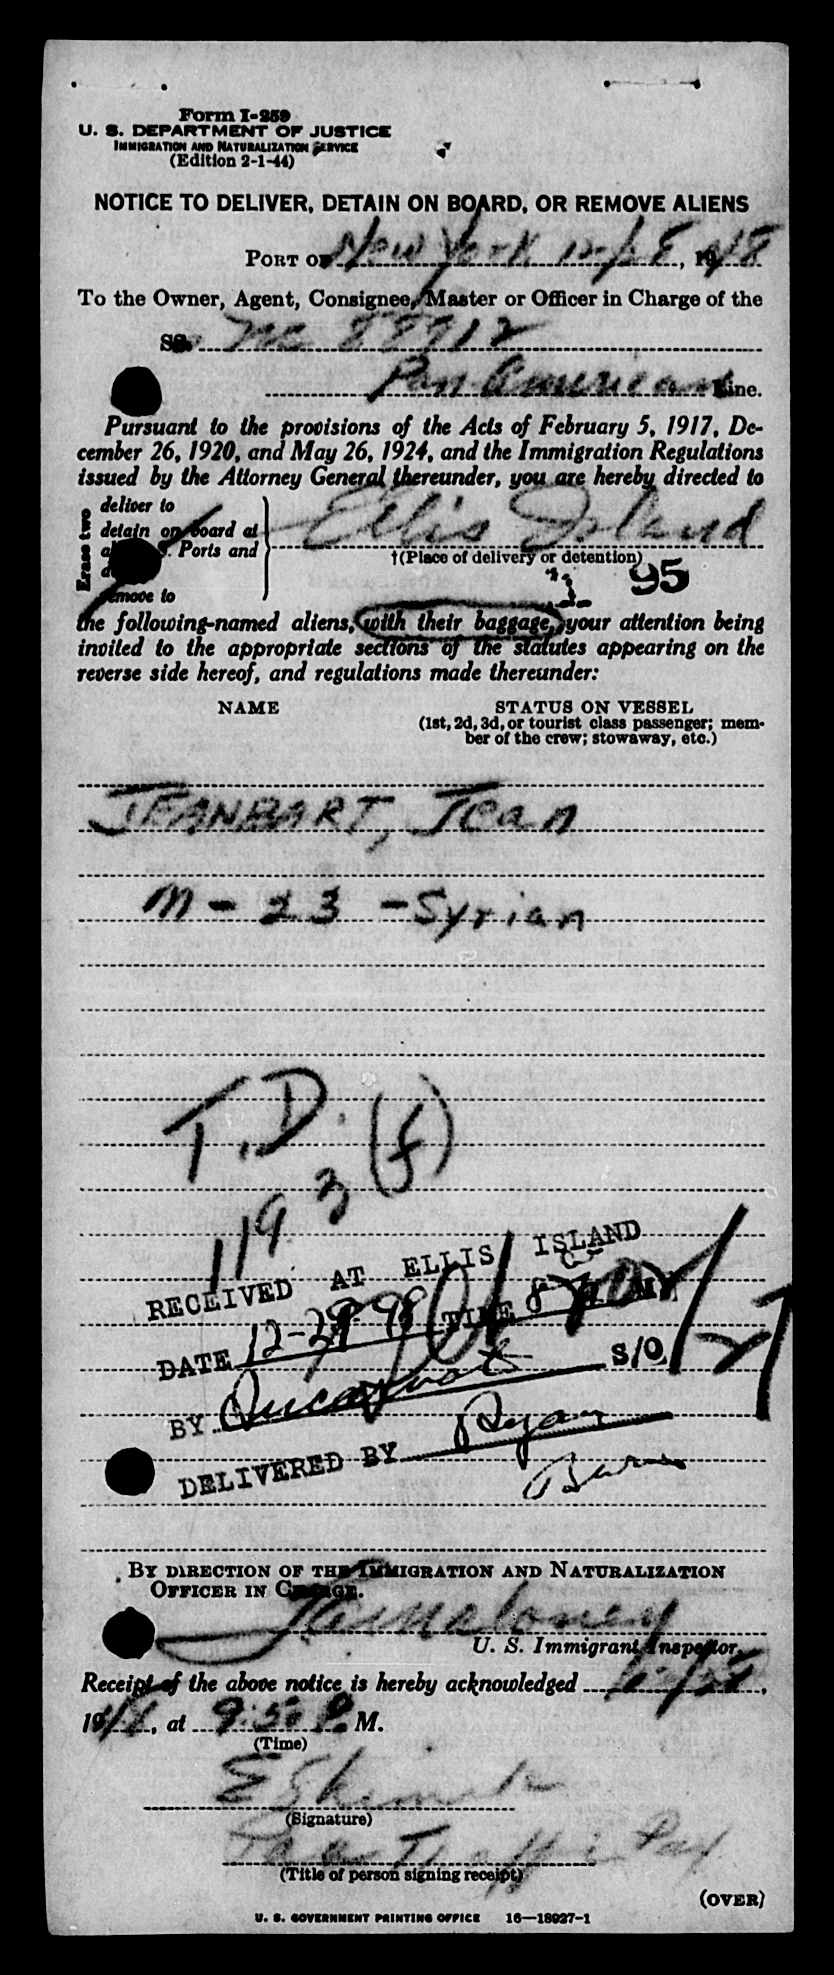 Form I-259
U. S. DEPARTMENT OF JUSTICE
IMMIGRATION AND NATURALIZATION SERVICE
(Edition 2-1-44)
NOTICE TO DELIVER, DETAIN ON BOARD, OR REMOVE ALIENS
PORT OF New York 12/28, 1948
To the Owner, Agent, Consignee, Master or Officer in Charge of the
SS. NC 88912
Pan American Line.
Pursuant to the provisions of the Acts of February 5, 1917, De-
cember 26, 1920, and May 26, 1924, and the Immigration Regulations
issued by the Attorney General thereunder, you are hereby directed to
Erase two
deliver to
detain on board at
Ports and
remove to
Ellis Island
†(Place of delivery or detention)
95
the following-named aliens, with their baggage, your attention being
invited to the appropriate sections of the statutes appearing on the
reverse side hereof, and regulations made thereunder:
NAME STATUS ON VESSEL
(1st, 2d, 3d, or tourist class passenger; mem-
ber of the crew; stowaway, etc.)
JEANBART, Jean
M - 23 - Syrian
T.D. (f)
1193
RECEIVED AT ELLIS ISLAND
DATE 12-29-48 TIME 8 M
BY S/O
DELIVERED BY Ryan
BY DIRECTION OF THE IMMIGRATION AND NATURALIZATION
OFFICER IN CHARGE.
U. S. Immigrant Inspector.
Receipt of the above notice is hereby acknowledged 12/28,
1948, at 9:50 P. M.
(Time)
(Signature)
(Title of person signing receipt)
(OVER)
U. S. GOVERNMENT PRINTING OFFICE 16—18927-1